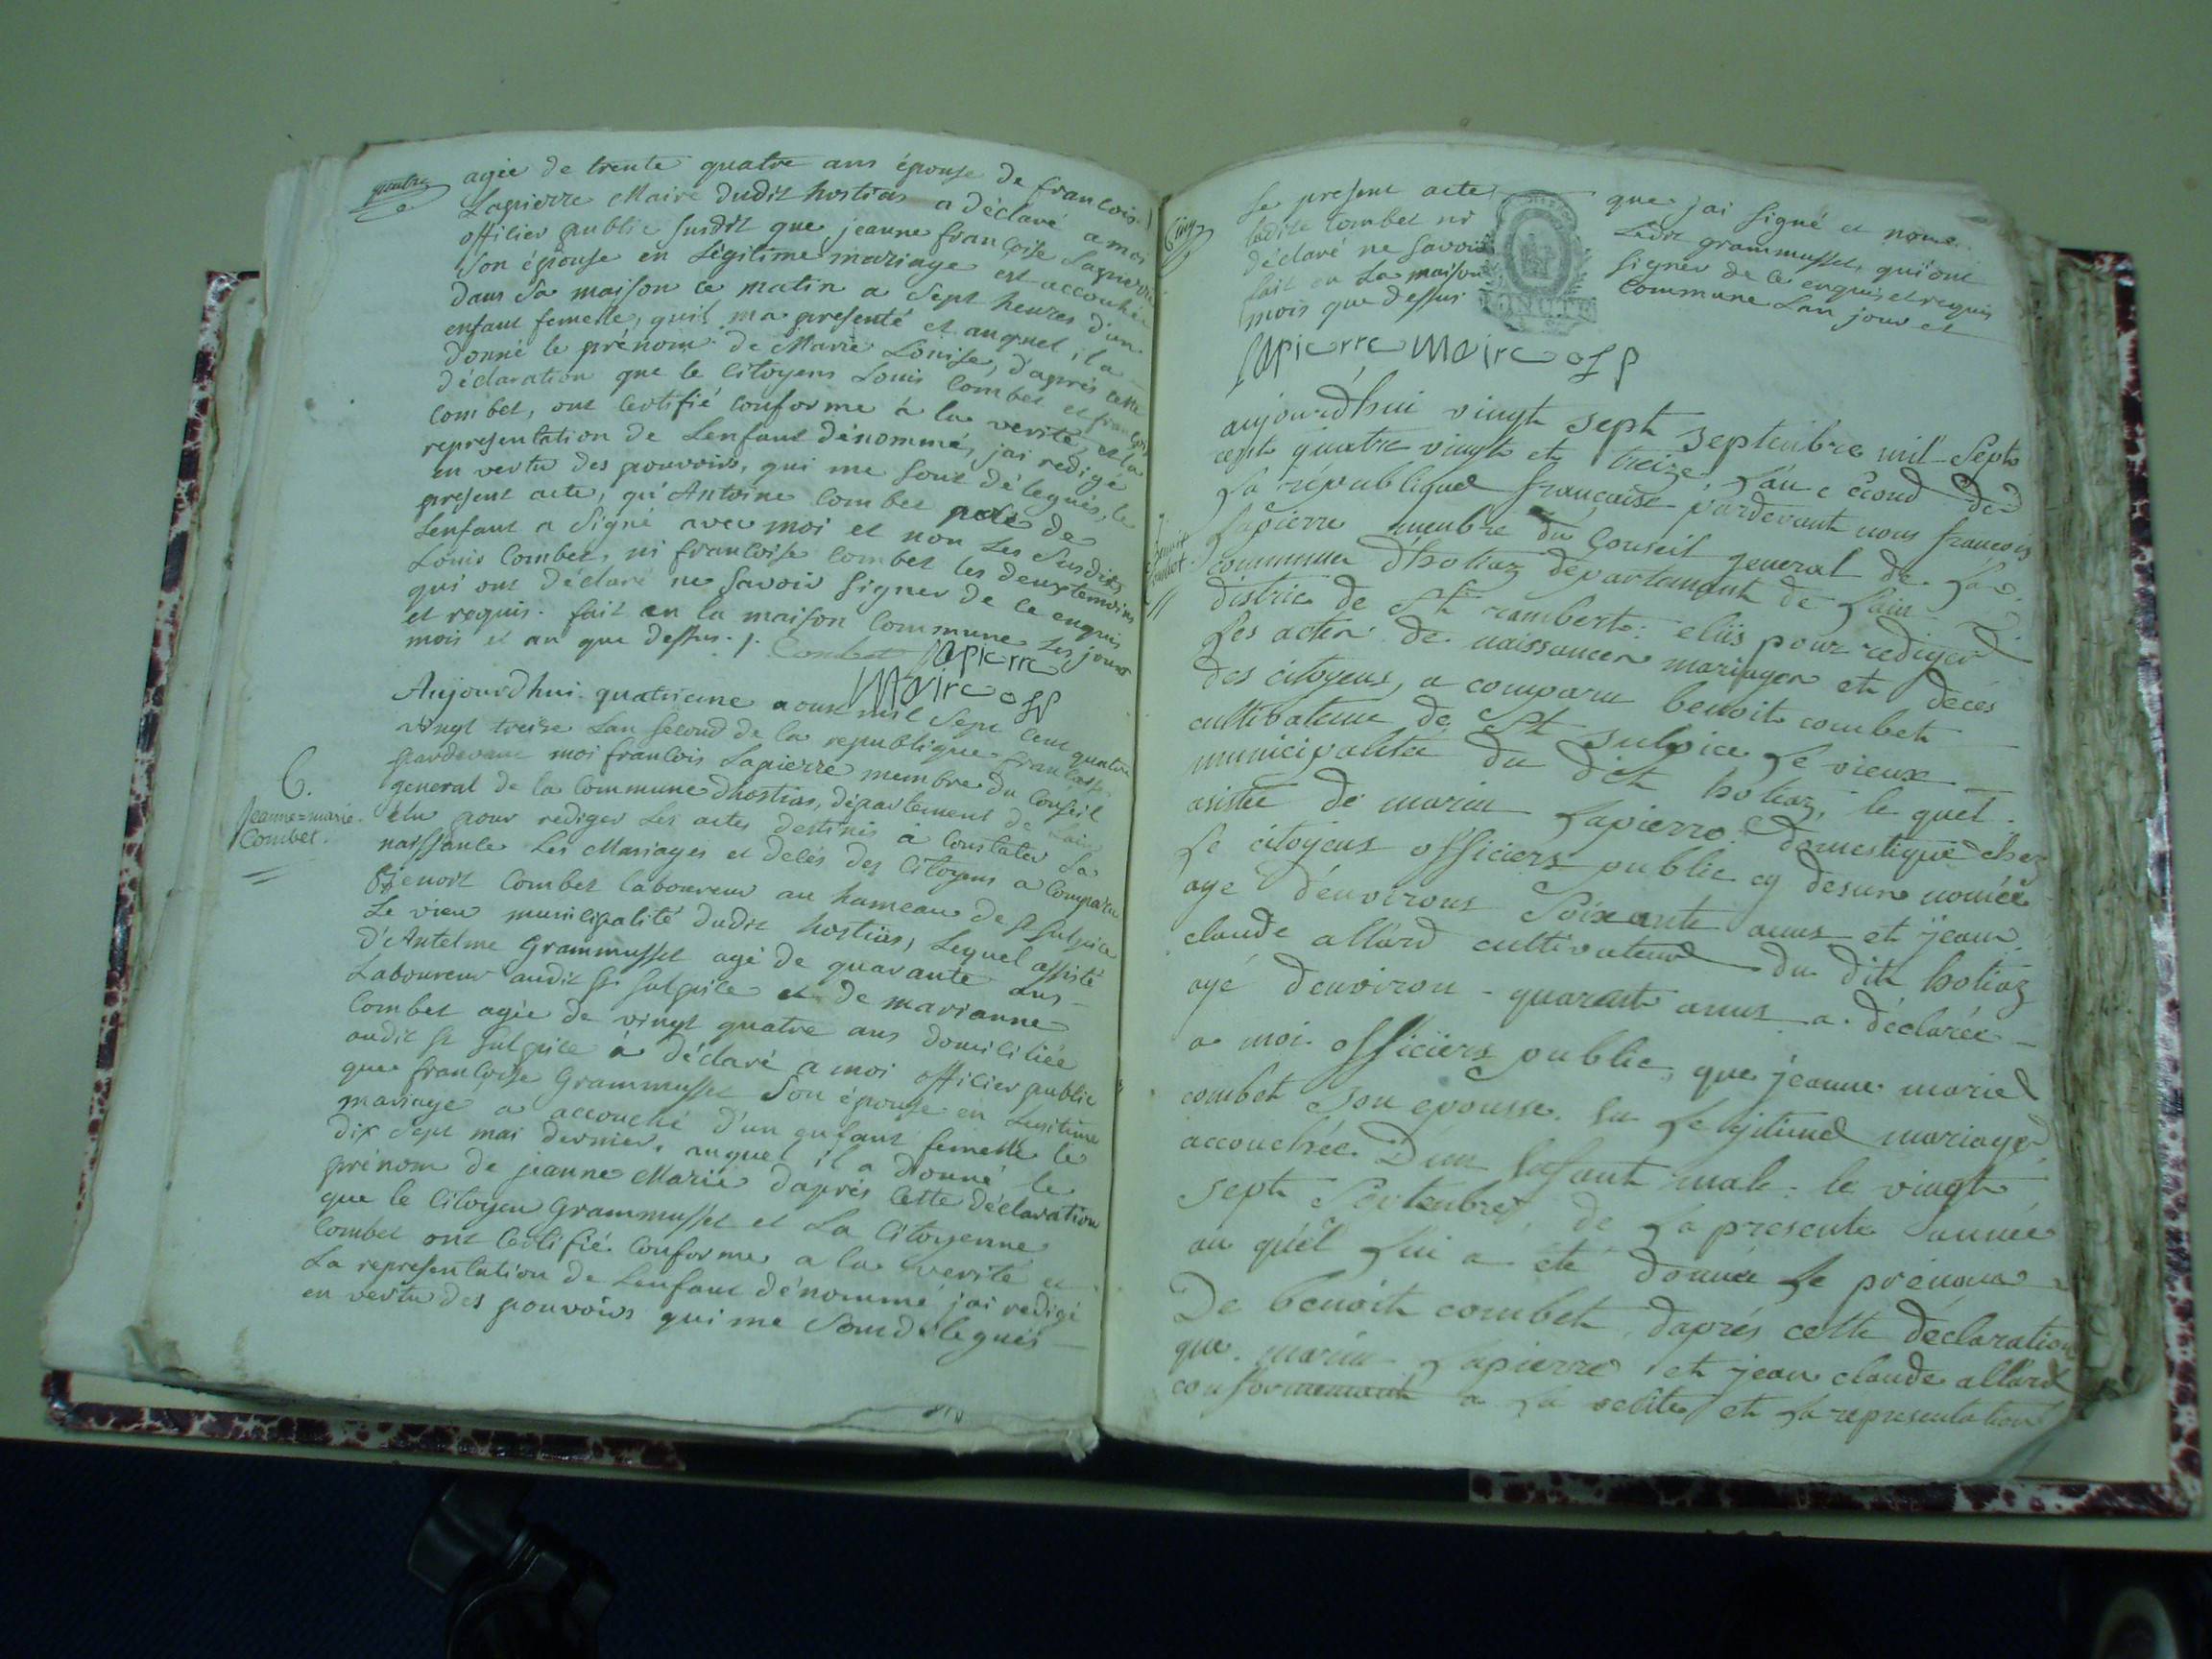 quatre
agée de trente quatre ans épouse de francois
Lapierre Maire dudit hostias a déclaré a moi
officier public susdit que jeanne francoise Lapierre
Son épouse en Légitime mariage est accouchée
dans Sa maison ce matin a Sept heures d'un
enfant femelle, quil ma presenté et auquel il a
donné le prénom de Marie Louise, d'après cette
déclaration que le Citoyens Louis Combet et francois
Combet, ont Certifié Conforme à la verité et la
representation de Lenfant dénommé, jai redigé
en vertu des pouvoirs, qui me sont délegués, le
present acte, qu'Antoine Combet pere de
Lenfant a Signé avec moi et non Les Susdits
Louis Combet, ni francoise Combet les deux temoins
qui ont déclaré ne Savoir Signer de ce enquis
et requis. fait en la maison Commune Les jours
mois et an que dessus. /. Combet Lapierre
Maire of p
Aujourdhui quatrieme aoust mil Sept Cent quatre
vingt treize Lan Second de la republique francaise
pardevant moi francois Lapierre membre du Conseil
general de la Commune dhostias, département de Lain
élu pour rediger Les actes destinés à Constater La
6.
Jeanne=marie
Combet.
naissance Les Mariages et décès des Citoyens a Comparu
Benoit Combet laboureur au hameau de St Sulpice
Le vieu municipalité dudit hostias, Lequel assisté
d'Antelme Grammusset agé de quarante ans
Laboureur audit St Sulpice et de marianne
Combet agée de vingt quatre ans domiciliée
audit St Sulpice à déclaré a moi officier public
que francoise Grammusset Son épouse en Lusitime
mariage a accouché d'un enfant femelle le
dix Sept mai dernier, auquel il a donné le
prénom de jeanne Marie d'après Cette déclaration
que le Citoyen Grammusset et La Citoyenne
Combet ont Certifié Conforme a la verité et
La representation de Lenfant dénommé jai redigé
en vertu des pouvoirs qui me Sont délegués
Cinq
Le present acte que jai Signé et non
ladite Combet ni Ledit grammusset, qui ont
déclaré ne Savoir Signer de Ce enquis et requis
fait en La maison Commune Lan jour et
mois que dessus
Lapierre Maire of p
aujourd'hui vingt sept septembre mil Sept
cent quatre vingt et treize L'an c écond de
La république francaise pardevant nous francois
Lapierre menbre du Conseil general de La
benoit
Combet
commune dhotiaz departemant de Lain
distric de St rambert elüs pour rediger
Les acten de naissancen mariagen et décés
des citoyens, a comparu benoit combet
cultivateur de St Sulpice Le vieux
municipalitée du dit hotiaz, le quel
asistée de marin Lapierre domestique chez
Le citoyens officiers public cy desun nomée
agé d'environs Soixante anns et jean
claude allard cultivateur du dit hotiaz
agé denviron quarante anns a déclarée
a moi officiiers public, que jeanne marie
combet son epousse en Legitime mariage
accouchée D'un Enfant male le vingt
sept Septenbre, de La presente année
au quél Lui a eté donnée Le prénom
De benoit combet daprés cette declaration
que marin Lapierre et jean claude allard
conformemant a La vérité et La representation